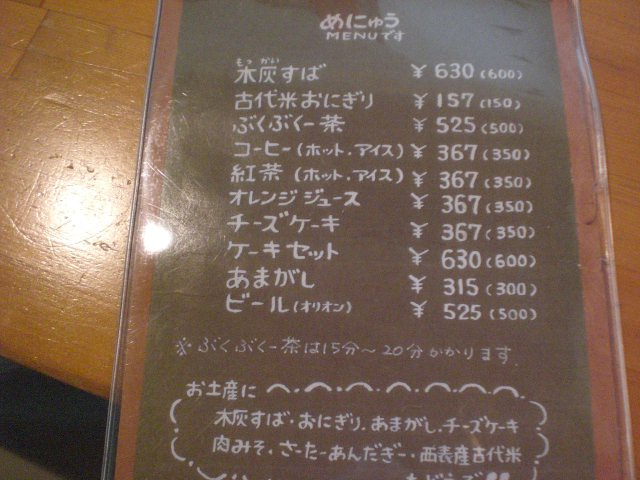 めにゅう
MENUです
もっ かい
木灰すば ¥630(600)
古代米おにぎり ¥157(150)
ぶくぶくー茶 ¥525(500)
コーヒー(ホット.アイス) ¥367(350)
紅茶(ホット.アイス) ¥367(350)
オレンジジュース ¥367(350)
チーズケーキ ¥367(350)
ケーキセット ¥630(600)
あまがし ¥315(300)
ビール(オリオン) ¥525(500)
※ぶくぶくー茶は15分～20分かかります.
お土産に
木灰すば・おにぎり.あまがし.チーズケーキ
肉みそ・さーたーあんだぎー・西表産古代米